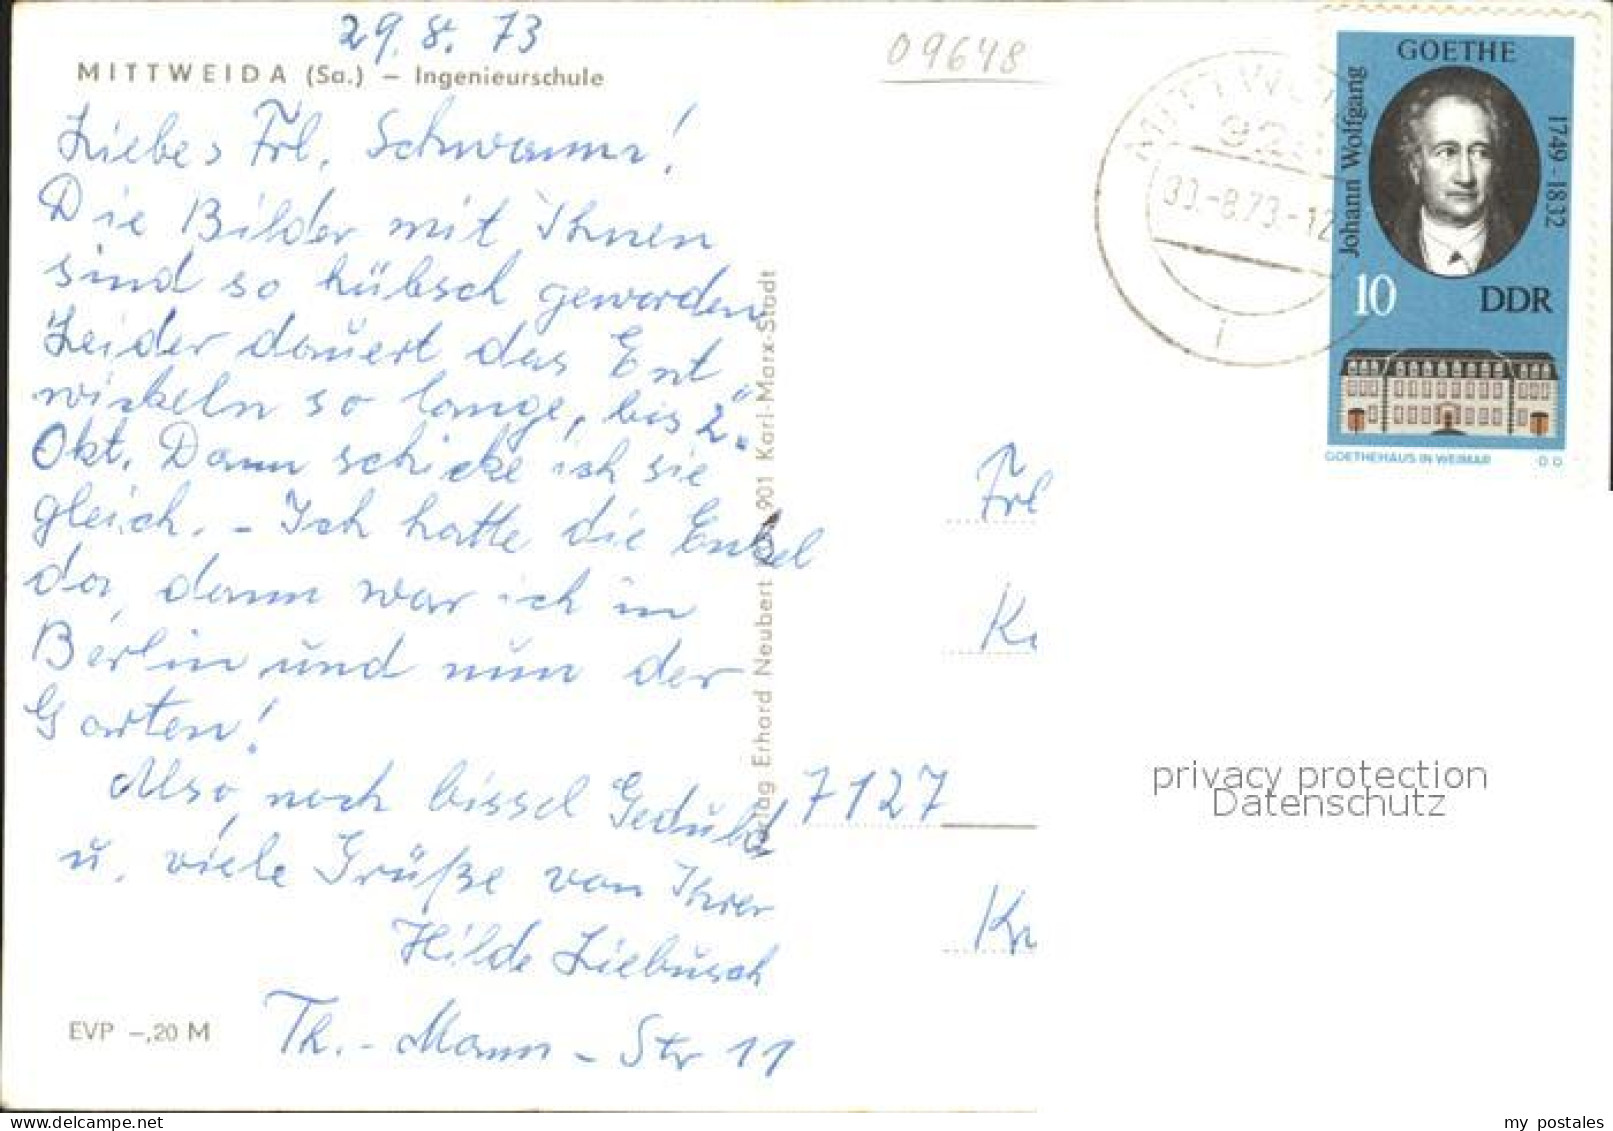 29. 8. 73
MITTWEIDA (Sa.) – Ingenieurschule
09648
Liebes Frl. Schwamm!
Die Bilder mit Ihnen
sind so hübsch geworden
Leider dauert das Ent
wickeln so lange, bis 2.
Okt. Dann schicke ich sie
gleich. – Ich hatte die Enkel
da, dann war ich in
Berlin und nun der
Garten!
Also, noch bissel Geduld
u. viele Grüße von Ihrer
Hilde Liebusch
Th.-Mann-Str 11
EVP –,20 M
Verlag Erhard Neubert KG 901 Karl-Marx-Stadt
30.-8.73.-12
i
GOETHE
Johann Wolfgang
1749 - 1832
10 DDR
GOETHEHAUS IN WEIMAR D.D.
Frl
7127
privacy protection
Datenschutz
my postales